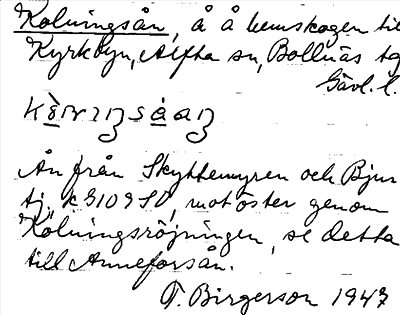 Kölningsån, å å hemskogen till
Kyrkbyn, Alfta sn, Bollnäs tg
Gävl. l.
Ån från Skyttemyren och Bjur
tj. k 3109 SO, mot öster genom
Kölningsröjningen, se detta
till Anneforsån.
T. Birgerson 1947